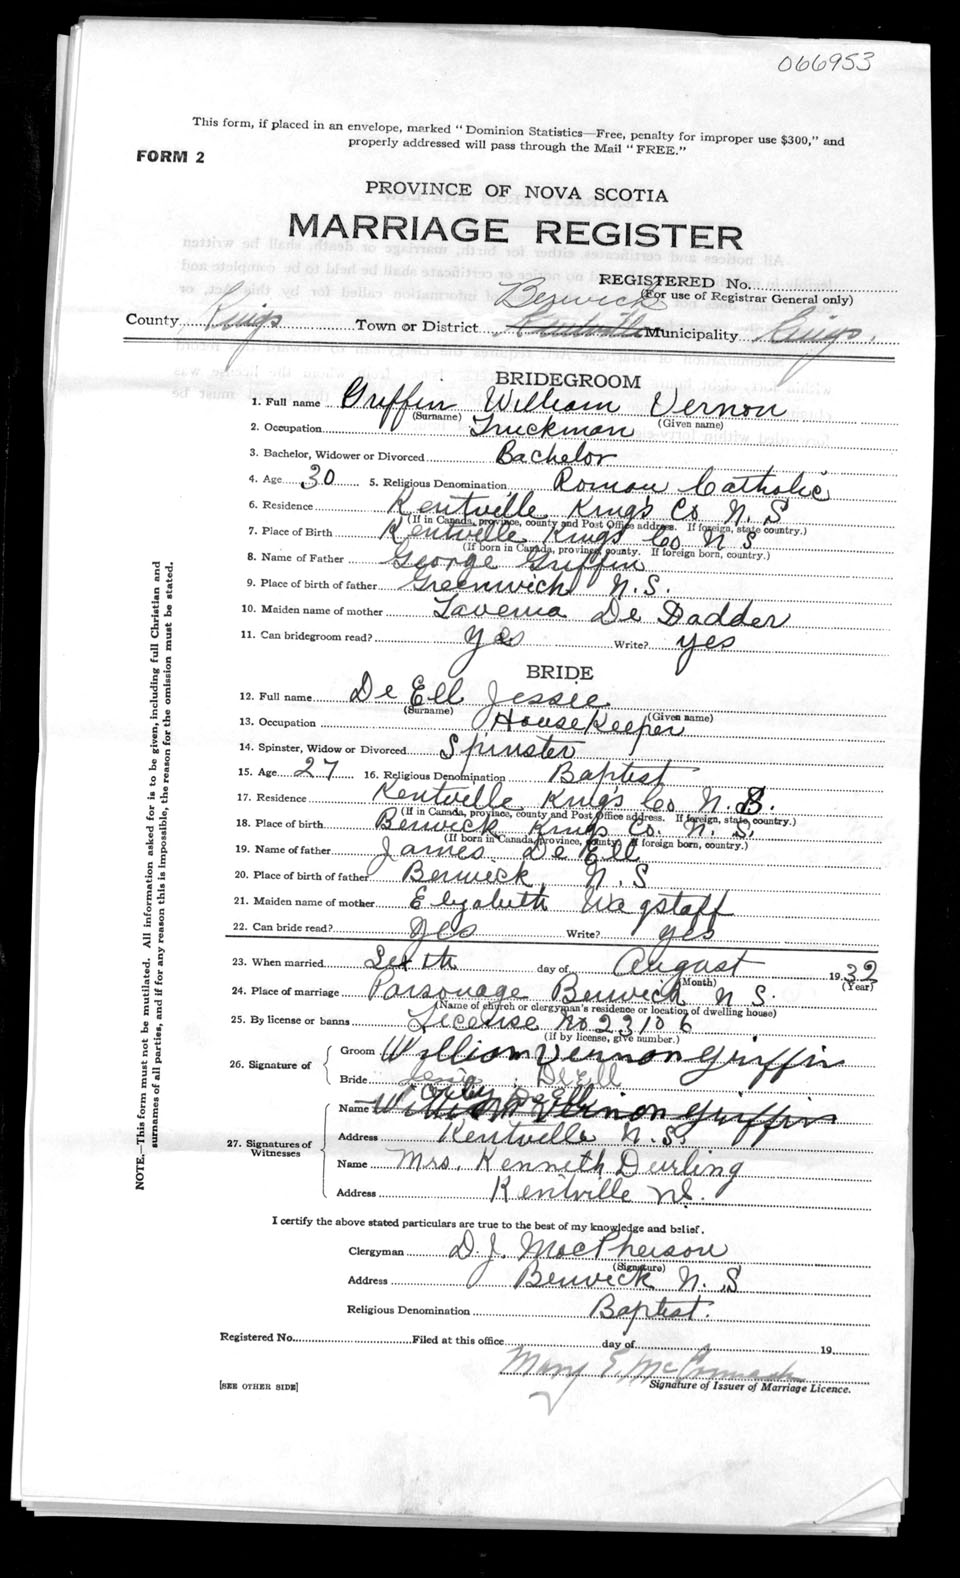 066953
This form, if placed in an envelope, marked " Dominion Statistics—Free, penalty for improper use $300," and
properly addressed will pass through the Mail " FREE."
FORM 2
PROVINCE OF NOVA SCOTIA
MARRIAGE REGISTER
REGISTERED No.
Berwick (For use of Registrar General only)
County Kings Town or District Kentville Municipality Kings.
BRIDEGROOM
1. Full name Griffin William Vernon
(Surname) (Given name)
2. Occupation Truckman
3. Bachelor, Widower or Divorced Bachelor
4. Age 30 5. Religious Denomination Roman Catholic
6. Residence Kentville King's Co N. S
(If in Canada, province, county and Post Office address. If foreign, state country.)
7. Place of Birth Kentville Kings Co N S
(If born in Canada, province, county. If foreign born, country.)
8. Name of Father George Griffin
9. Place of birth of father Greenwich N. S.
10. Maiden name of mother Lavenia De Dadder
11. Can bridegroom read? yes Write? yes
BRIDE
12. Full name De Ell Jessie
(Surname) (Given name)
13. Occupation HouseKeeper
14. Spinster, Widow or Divorced Spinster
15. Age 27 16. Religious Denomination Baptist
17. Residence Kentville King's Co N. S.
(If in Canada, province, county and Post Office address. If foreign, state country.)
18. Place of birth Berwick Kings Co. N. S.
(If born in Canada, province, county. If foreign born, country.)
19. Name of father James De Ell
20. Place of birth of father Berwick N. S
21. Maiden name of mother Elizabeth Wagstaff
22. Can bride read? yes Write? yes
23. When married Sixth day of August 1932
(Month) (Year)
24. Place of marriage Parsonage Berwick N S.
(Name of church or clergyman's residence or location of dwelling house)
25. By license or banns License No 23106
(If by license, give number.)
26. Signature of Groom William Vernon Griffin
Bride Jessie DeEll
DeEll
27. Signatures of Witnesses Name William Vernon Griffin
Address Kentville N. S.
Name Mrs. Kenneth Deurling
Address Kentville N.S.
I certify the above stated particulars are true to the best of my knowledge and belief.
Clergyman D. J. MacPherson
(Signature)
Address Berwick N. S
Religious Denomination Baptist.
Registered No. Filed at this office day of 19
Mary E. McCormack
[SEE OTHER SIDE] Signature of Issuer of Marriage Licence.
NOTE.—This form must not be mutilated. All information asked for is to be given, including full Christian and
surnames of all parties, and if for any reason this is impossible, the reason for the omission must be stated.